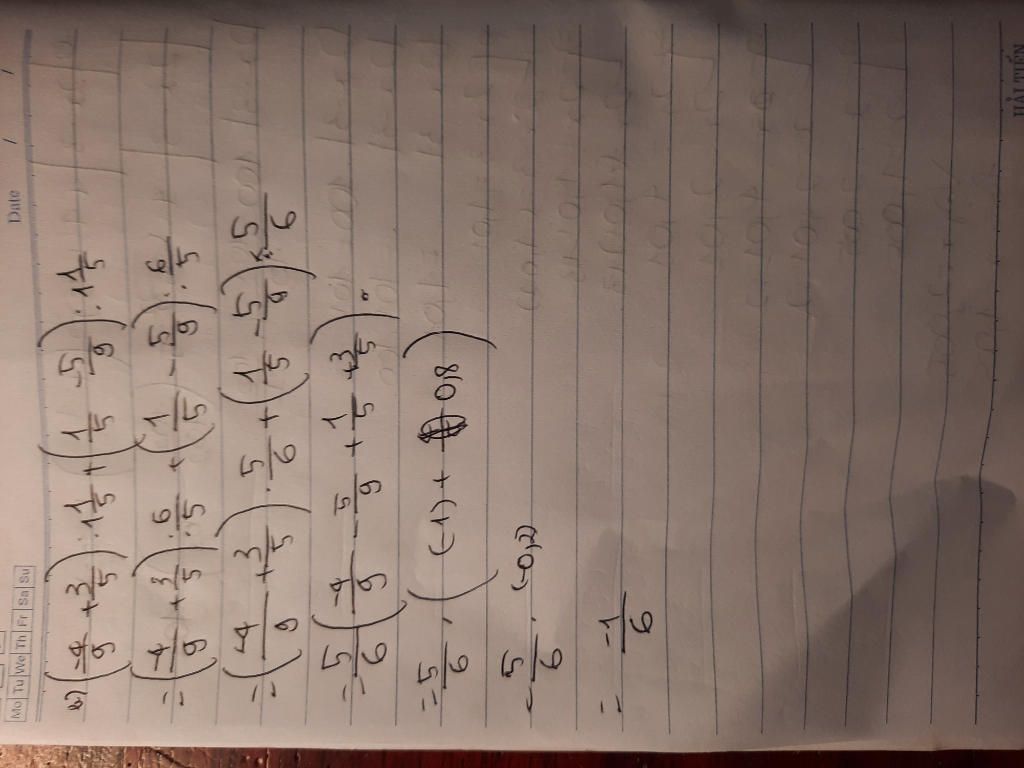 Mo Tu We Th Fr Sa Su Date / /
b) (-4/9 + 3/5) : 1 1/5 + (1/5 - 5/9) : 1 1/5
= (-4/9 + 3/5) : 6/5 + (1/5 - 5/9) : 6/5
= (-4/9 + 3/5) . 5/6 + (1/5 - 5/9) . 5/6
= 5/6 (-4/9 - 5/9 + 1/5 + 3/5) .
= 5/6 . ((-1) + 0,8)
= 5/6 . (-0,2)
= -1/6
HẢI TIẾN